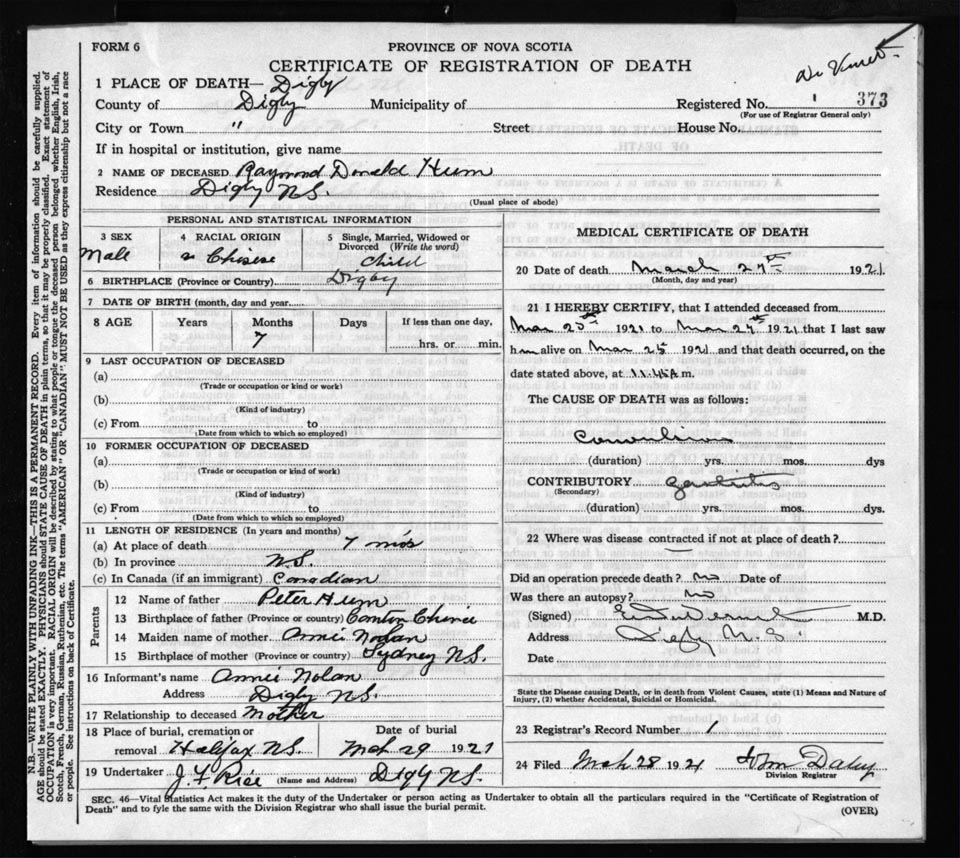 FORM 6
PROVINCE OF NOVA SCOTIA
CERTIFICATE OF REGISTRATION OF DEATH
1 PLACE OF DEATH— Digby
County of Digby Municipality of Registered No. 1 373
(For use of Registrar General only)
City or Town " Street House No.
If in hospital or institution, give name
2 NAME OF DECEASED Raymond Donald Hum
Residence Digby N.S.
(Usual place of abode)
PERSONAL AND STATISTICAL INFORMATION
3 SEX Male
4 RACIAL ORIGIN Chinese
5 Single, Married, Widowed or Divorced (Write the word) Child
6 BIRTHPLACE (Province or Country) Digby
7 DATE OF BIRTH (month, day and year)
8 AGE Years Months Days If less than one day,
7 hrs. or min.
9 LAST OCCUPATION OF DECEASED
(a)
(Trade or occupation or kind or work)
(b)
(Kind of industry)
(c) From to
(Date from which to which so employed)
10 FORMER OCCUPATION OF DECEASED
(a)
(Trade or occupation or kind of work)
(b)
(Kind of industry)
(c) From to
(Date from which to which so employed)
11 LENGTH OF RESIDENCE (In years and months)
(a) At place of death 7 mos
(b) In province N.S.
(c) In Canada (if an immigrant) Canadian
Parents
12 Name of father Peter Hum
13 Birthplace of father (Province or country) Canton
14 Maiden name of mother Annie Nolan
15 Birthplace of mother (Province or country) Sydney N.S.
16 Informant's name Annie Nolan
Address Digby N.S.
17 Relationship to deceased Mother
18 Place of burial, cremation or Date of burial
removal Halifax N.S. Mch 29 1921
19 Undertaker J. F. Rice (Name and Address) Digby N.S.
MEDICAL CERTIFICATE OF DEATH
20 Date of death March 27th 1921
(Month, day and year)
21 I HEREBY CERTIFY, that I attended deceased from
Mar 25th 1921 to Mar 27th 1921 that I last saw
him alive on Mar 25 1921 and that death occurred, on the
date stated above, at m.
The CAUSE OF DEATH was as follows:
Convulsions
(duration) yrs. mos. dys
CONTRIBUTORY
(Secondary)
(duration) yrs. mos. dys.
22 Where was disease contracted if not at place of death?
Did an operation precede death? No Date of
Was there an autopsy? No
(Signed) M.D.
Address Digby N.S.
Date
State the Disease causing Death, or in death from Violent Causes, state (1) Means and Nature of
Injury, (2) whether Accidental, Suicidal or Homicidal.
23 Registrar's Record Number 1
24 Filed Mch 28 1921 Daley
Division Registrar
SEC. 46—Vital Statistics Act makes it the duty of the Undertaker or person acting as Undertaker to obtain all the particulars required in the "Certificate of Registration of
Death" and to fyle the same with the Division Registrar who shall issue the burial permit.
(OVER)
N.B.—WRITE PLAINLY WITH UNFADING INK—THIS IS A PERMANENT RECORD. Every item of information should be carefully supplied.
AGE should be stated EXACTLY. PHYSICIANS should STATE CAUSE OF DEATH in plain terms, so that it may be properly classified. Exact statement of
OCCUPATION is very important. RACIAL ORIGIN will be described by stating to what people or tongue the deceased person belonged whether English, Irish,
Scotch, French, German, Russian, Ruthenian, etc. The terms "AMERICAN" OR "CANADIAN" MUST NOT BE USED as they express citizenship but not a race
or people. See instructions on back of Certificate.